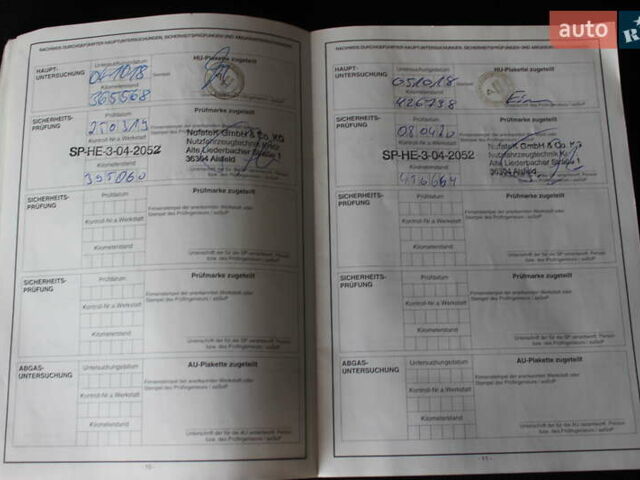 auto
NACHWEIS DURCHGEFÜHRTER HAUPTUNTERSUCHUNGEN, SICHERHEITSPRÜFUNGEN UND ABGASUNTERSUCHUNGEN
HAUPT-
UNTERSUCHUNG
Untersuchungsdatum
Kilometerstand
365568
HU-Plakette zugeteilt
SICHERHEITS-
PRÜFUNG
Prüfdatum
250319
Kontroll-Nr.a.Werkstatt
SP-HE-3-04-2052
Kilometerstand
395060
Prüfmarke zugeteilt
Nufatek GmbH & Co. KG
Nutzfahrzeugtechnik
Alte Liederbacher Straße 1
36304 Alsfeld
SICHERHEITS-
PRÜFUNG
Prüfdatum
Kontroll-Nr.a.Werkstatt
Kilometerstand
Prüfmarke zugeteilt
Firmenstempel der anerkannten Werkstatt oder
Stempel des Prüfingenieurs / aaSoP
Unterschrift der für die SP verantwortl. Person
bzw. des Prüfingenieurs / aaSoP
SICHERHEITS-
PRÜFUNG
Prüfdatum
Kontroll-Nr.a.Werkstatt
Kilometerstand
Prüfmarke zugeteilt
Firmenstempel der anerkannten Werkstatt oder
Stempel des Prüfingenieurs / aaSoP
Unterschrift der für die SP verantwortl. Person
bzw. des Prüfingenieurs / aaSoP
ABGAS-
UNTERSUCHUNG
Untersuchungsdatum
Kontroll-Nr.a.Werkstatt
Kilometerstand
AU-Plakette zugeteilt
Firmenstempel der anerkannten Werkstatt oder
Stempel des Prüfingenieurs / aaSoP
Unterschrift der für die AU verantwortl. Person
bzw. des Prüfingenieurs / aaSoP
- 10 -
NACHWEIS DURCHGEFÜHRTER HAUPTUNTERSUCHUNGEN, SICHERHEITSPRÜFUNGEN UND ABGASUNTERSUCHUNGEN
HAUPT-
UNTERSUCHUNG
Untersuchungsdatum
051018
Kilometerstand
426738
HU-Plakette zugeteilt
SICHERHEITS-
PRÜFUNG
Prüfdatum
080420
Kontroll-Nr.a.Werkstatt
SP-HE-3-04-2052
Kilometerstand
Prüfmarke zugeteilt
Nufatek GmbH & Co. KG
Nutzfahrzeugtechnik
Alte Liederbacher Straße 1
36304 Alsfeld
SICHERHEITS-
PRÜFUNG
Prüfdatum
Kontroll-Nr.a.Werkstatt
Kilometerstand
Prüfmarke zugeteilt
Firmenstempel der anerkannten Werkstatt oder
Stempel des Prüfingenieurs / aaSoP
Unterschrift der für die SP verantwortl. Person
bzw. des Prüfingenieurs / aaSoP
SICHERHEITS-
PRÜFUNG
Prüfdatum
Kontroll-Nr.a.Werkstatt
Kilometerstand
Prüfmarke zugeteilt
Firmenstempel der anerkannten Werkstatt oder
Stempel des Prüfingenieurs / aaSoP
Unterschrift der für die SP verantwortl. Person
bzw. des Prüfingenieurs / aaSoP
ABGAS-
UNTERSUCHUNG
Untersuchungsdatum
Kontroll-Nr.a.Werkstatt
Kilometerstand
AU-Plakette zugeteilt
Firmenstempel der anerkannten Werkstatt oder
Stempel des Prüfingenieurs / aaSoP
Unterschrift der für die AU verantwortl. Person
bzw. des Prüfingenieurs / aaSoP
- 11 -